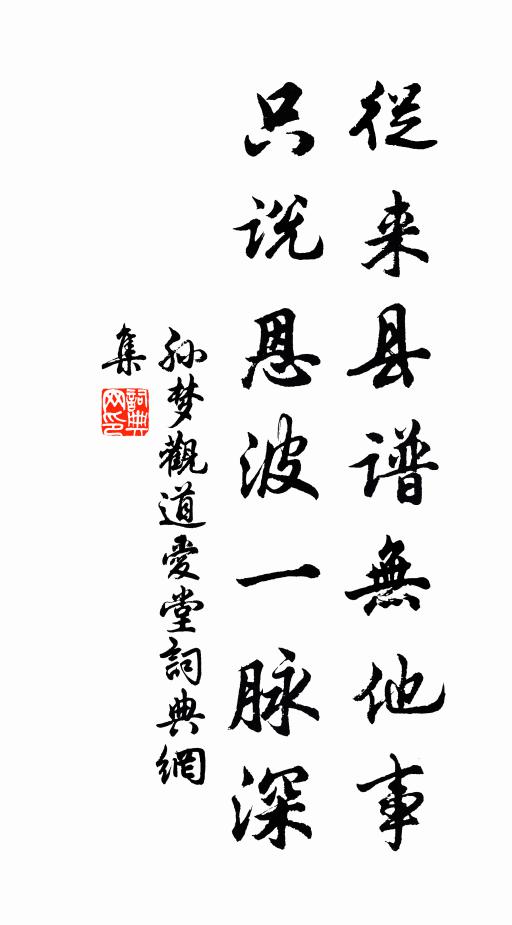 從来县谱無他事
只说恩波一脉深
孙梦觀道爱堂詞典網
集
詞典
网印